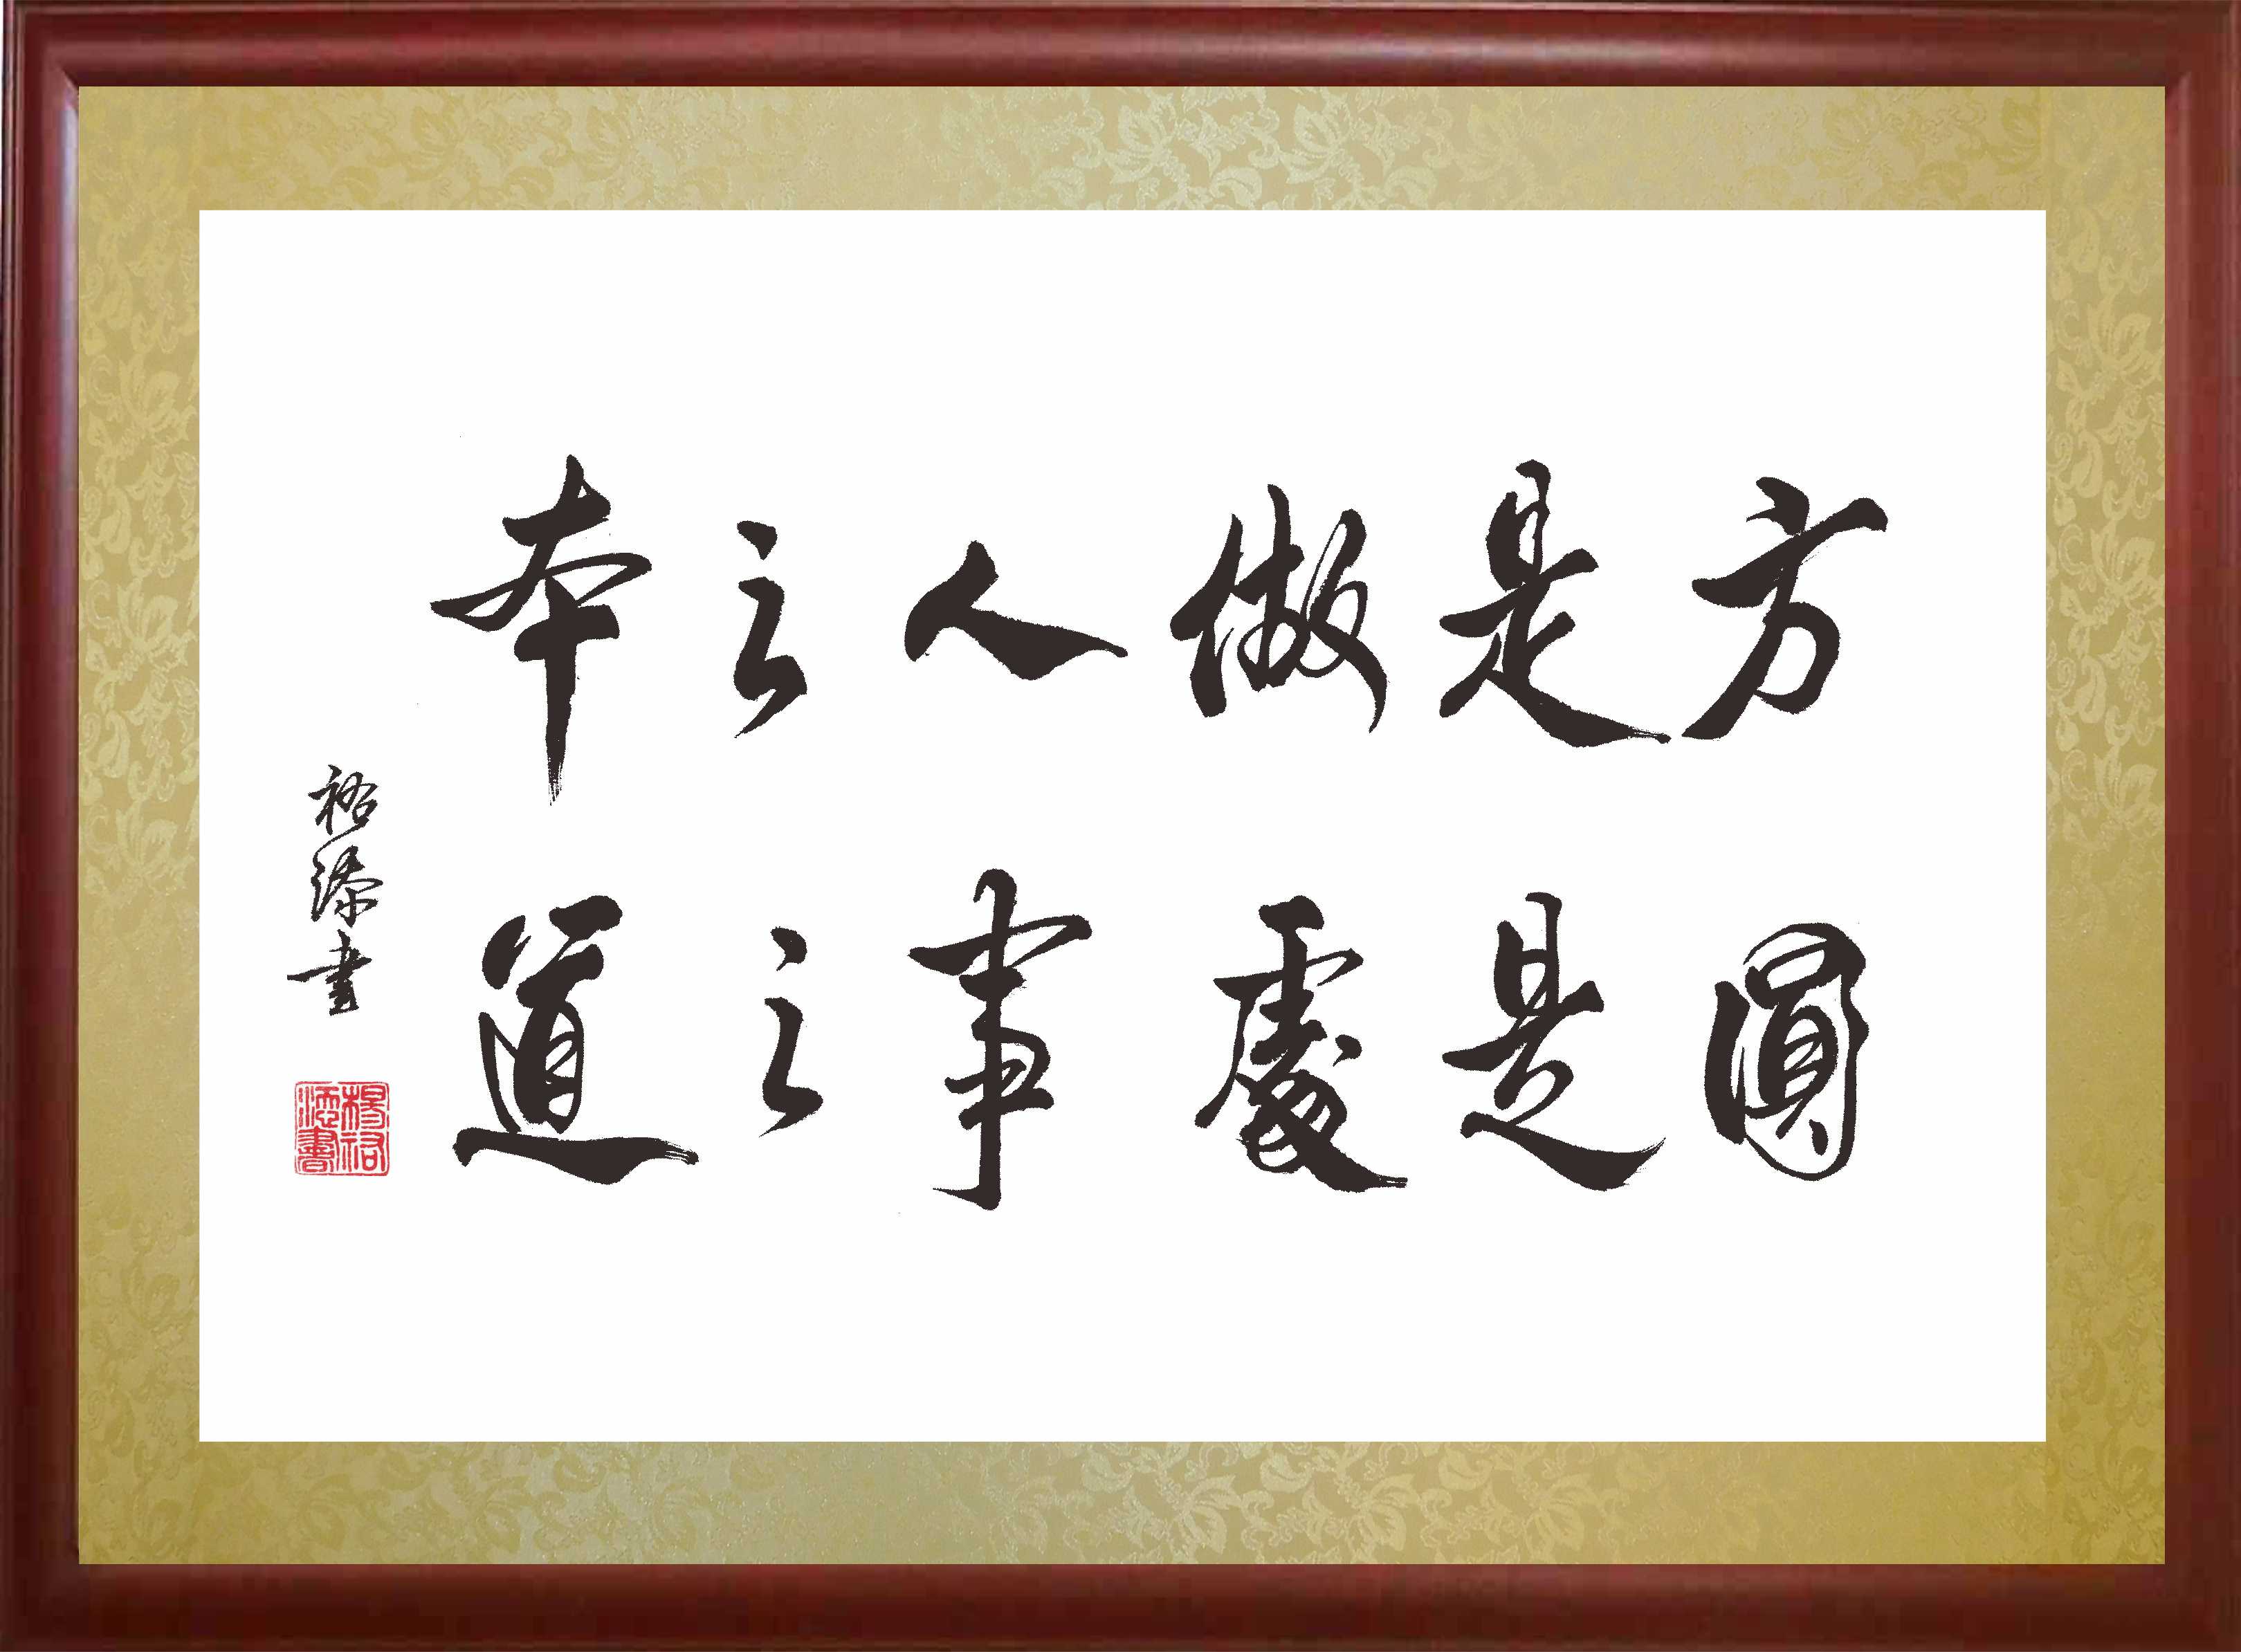 方是做人之本
圓是處事之道
裕添書
楊裕添書